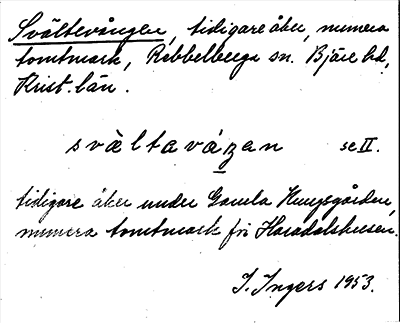 Svältevången, tidigare åker, numera
tomtmark, Rebbelberga sn. Bjäre hd,
Krist. län.
svàltavázan se II.
tidigare åker under Gamla Kungsgården,
numera tomtmark fri Haradalshusen.
I. Ingers 1953.